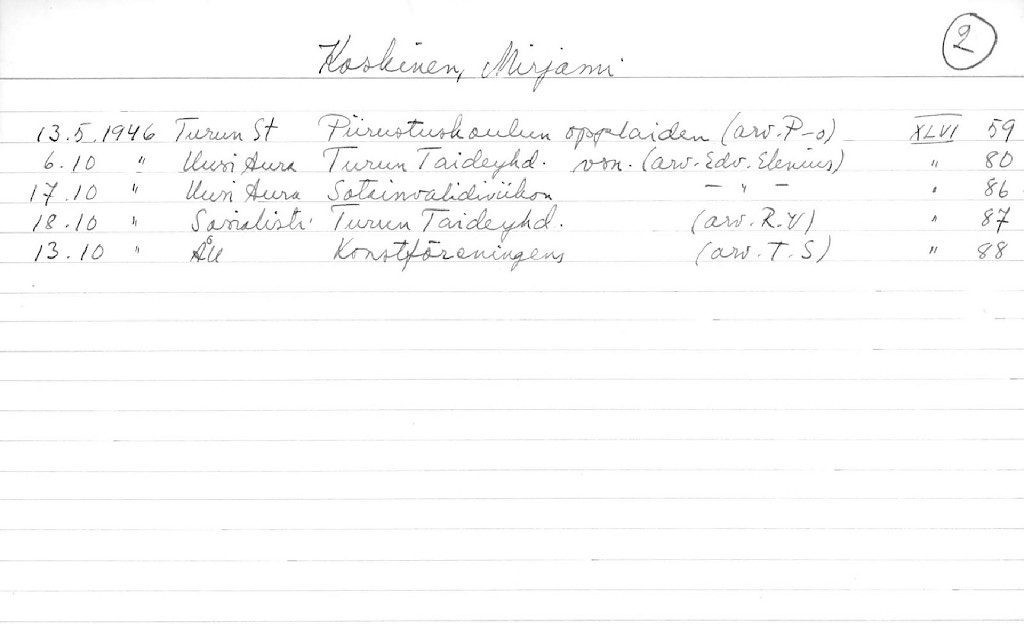 2
Koskinen, Mirjami
13.5.1946 Turun St Piirustuskoulun oppilaiden (arv. P-o) XLVI 59
6.10 " Uusi Aura Turun Taideyhd. vsn. (arv. Edv. Elenius) " 80
17.10 " Uusi Aura Sotainvalidiviikon — " — " 86
18.10 " Sosialisti Turun Taideyhd. (arv. R.V) " 87
13.10 " ÅU Konstföreningens (arv. T.S) " 88